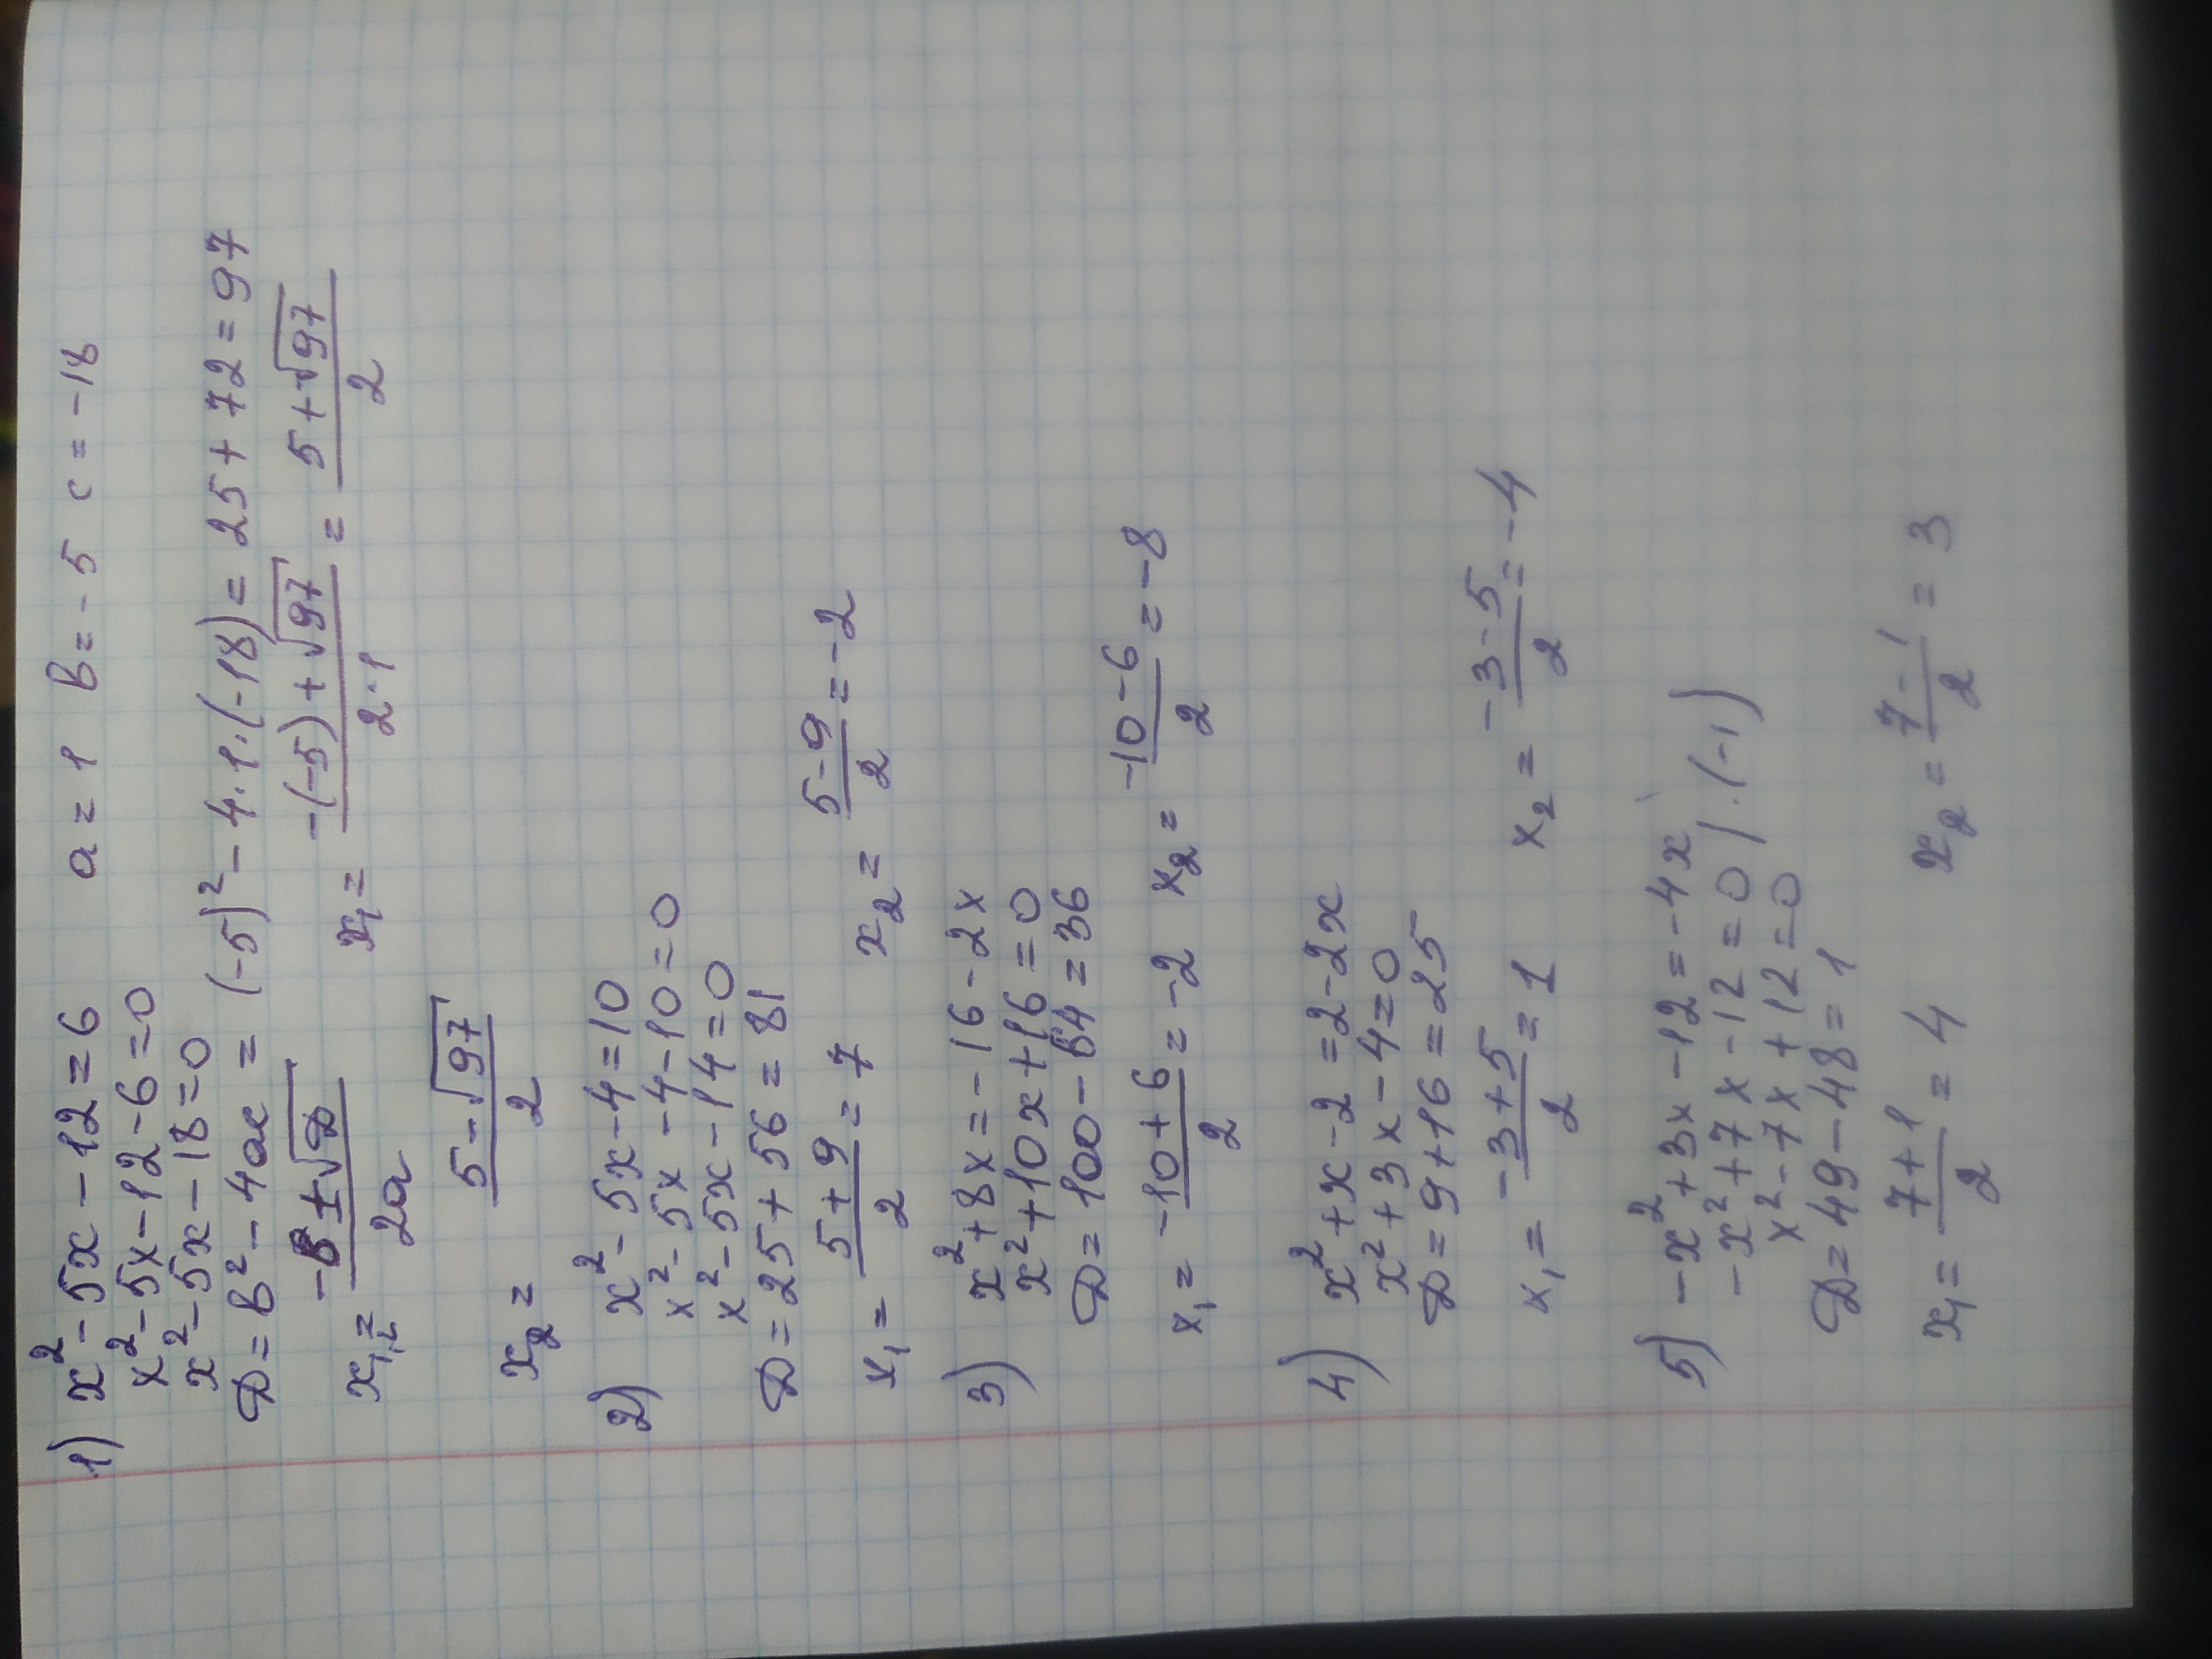 1) x² - 5x - 12 = 6   a = 1  b = -5  c = -18
x² - 5x - 12 - 6 = 0
x² - 5x - 18 = 0
D = b² - 4ac = (-5)² - 4·1·(-18) = 25 + 72 = 97
x₁,₂ = (-b ± √D)/(2a)   x₁ = (-(-5) + √97)/(2·1) = (5 + √97)/2
x₂ = (5 - √97)/2
2) x² - 5x - 4 = 10
x² - 5x - 4 - 10 = 0
x² - 5x - 14 = 0
D = 25 + 56 = 81
x₁ = (5 + 9)/2 = 7   x₂ = (5 - 9)/2 = -2
3) x² + 8x = -16 - 2x
x² + 10x + 16 = 0
D = 100 - 64 = 36
x₁ = (-10 + 6)/2 = -2   x₂ = (-10 - 6)/2 = -8
4) x² + x - 2 = 2 - 2x
x² + 3x - 4 = 0
D = 9 + 16 = 25
x₁ = (-3 + 5)/2 = 1   x₂ = (-3 - 5)/2 = -4
5) -x² + 3x - 12 = -4x
-x² + 7x - 12 = 0 | ·(-1)
x² - 7x + 12 = 0
D = 49 - 48 = 1
x₁ = (7 + 1)/2 = 4   x₂ = (7 - 1)/2 = 3